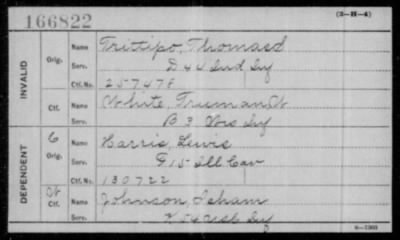 166822
(3-H-4)
INVALID
Orig.
Name Trittipo, Thomas D
Serv. D 44 Ind Inf
Ctf. No. 257478
Ctf.
Name White, Truman
Serv. B 3 Inf
DEPENDENT
C Orig.
Name Harris, Lewis
Serv. G 15 Ill Cav
Ctf. No. 130722
Ctf.
Name Johnson, Isham
Serv. K Inf
6-7300